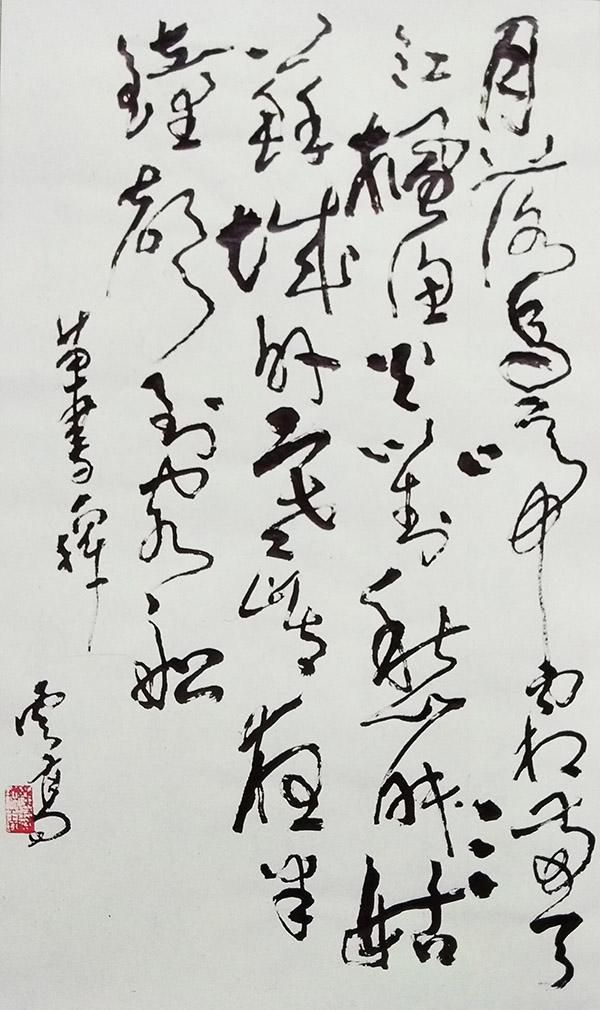 月落烏啼霜滿天
江楓漁火對愁眠姑
蘇城外寒山寺夜半
鐘聲到客船